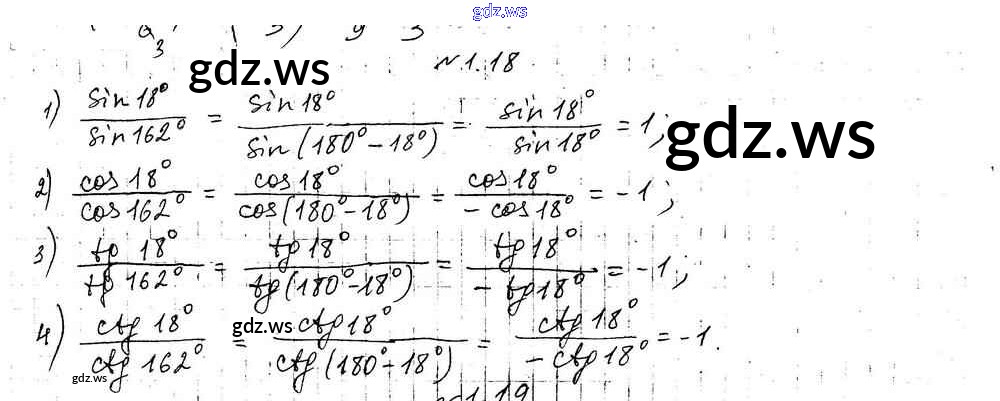 gdz.ws
gdz.ws
№ 1.18
1) sin 18° / sin 162° = sin 18° / sin (180° - 18°) = sin 18° / sin 18° = 1;
gdz.ws
2) cos 18° / cos 162° = cos 18° / cos (180° - 18°) = cos 18° / - cos 18° = - 1;
3) tg 18° / tg 162° = tg 18° / tg (180° - 18°) = tg 18° / - tg 18° = - 1;
4) ctg 18° / ctg 162° = ctg 18° / ctg (180° - 18°) = ctg 18° / - ctg 18° = - 1.
gdz.ws
gdz.ws